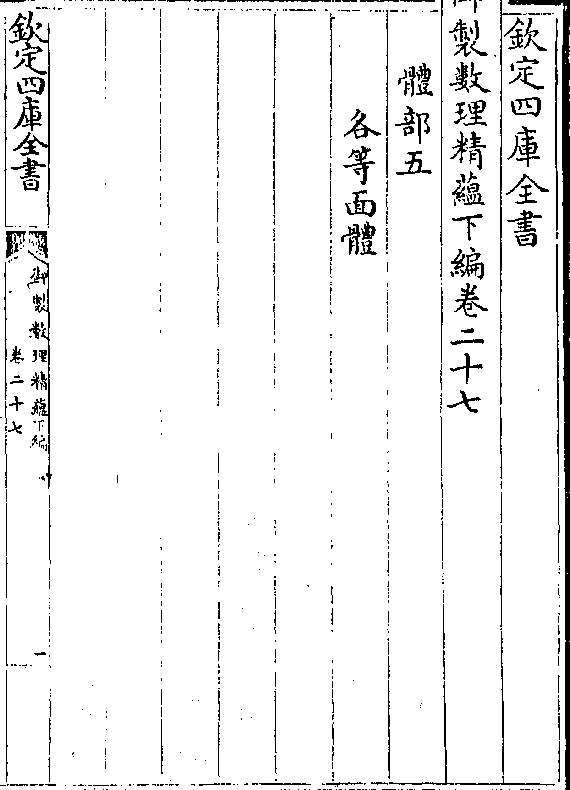 欽定四庫全書
御製數理精藴下編卷二十七
體部五
各等面體
欽定四庫全書
御製數理精藴下編
卷二十七
一